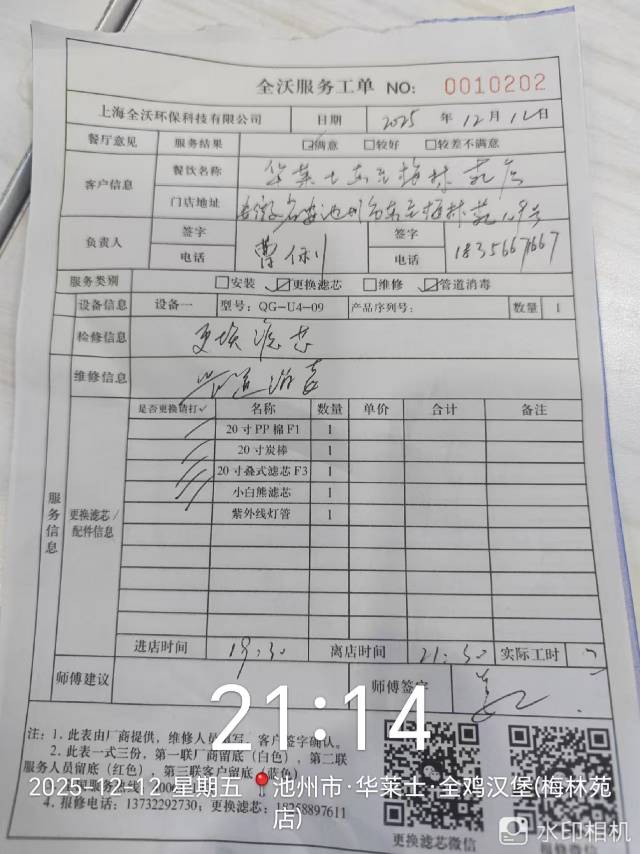 全沃服务工单 NO: 0010202
上海全沃环保科技有限公司 日期 2025 年 12 月 12 日
餐厅意见 服务结果 ☑满意 □较好 □较差不满意
客户信息 餐饮名称 华莱士东至梅林苑店
门店地址 安徽省池州市东至梅林苑
负责人 签字 曹 签字
电话 电话
服务类别 □安装 ☑更换滤芯 □维修 ☑管道消毒
设备信息 设备一 型号: QG-U4-09 产品序列号: 数量 1
检修信息 更换滤芯
维修信息 管道消毒
服务信息 更换滤芯/配件信息
是否更换请打✓ 名称 数量 单价 合计 备注
20寸PP棉F1 1
20寸炭棒 1
20寸叠式滤芯F3 1
小白熊滤芯 1
紫外线灯管 1
进店时间 19:30 离店时间 21:30 实际工时
师傅建议 师傅签字
21:14
注: 1. 此表由厂商提供, 维修人员填写, 客户签字确认。
2. 此表一式三份, 第一联厂商留底(白色), 第二联
服务人员留底(红色), 第三联客户留底(蓝色)
2025-12-12 星期五 池州市·华莱士·全鸡汉堡(梅林苑
店)
4. 报修电话: 13732292730; 更换滤芯: 18258897611
更换滤芯微信
水印相机